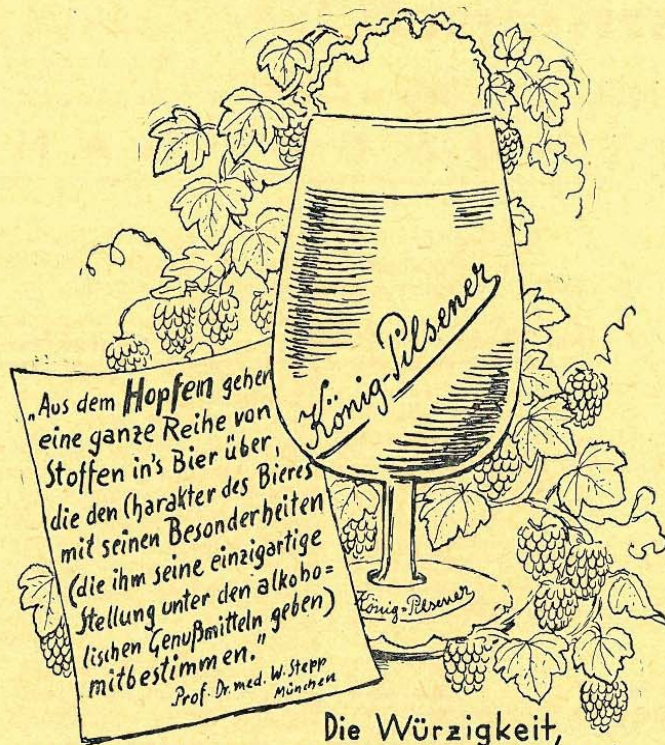 König-Pilsener
„Aus dem Hopfen gehen
eine ganze Reihe von
Stoffen in's Bier über,
die den Charakter des Bieres
mit seinen Besonderheiten
(die ihm seine einzigartige
Stellung unter den alkoho=
lischen Genußmitteln geben)
mitbestimmen."
Prof. Dr. med. W. Stepp
München
König=Pilsener
Die Würzigkeit,